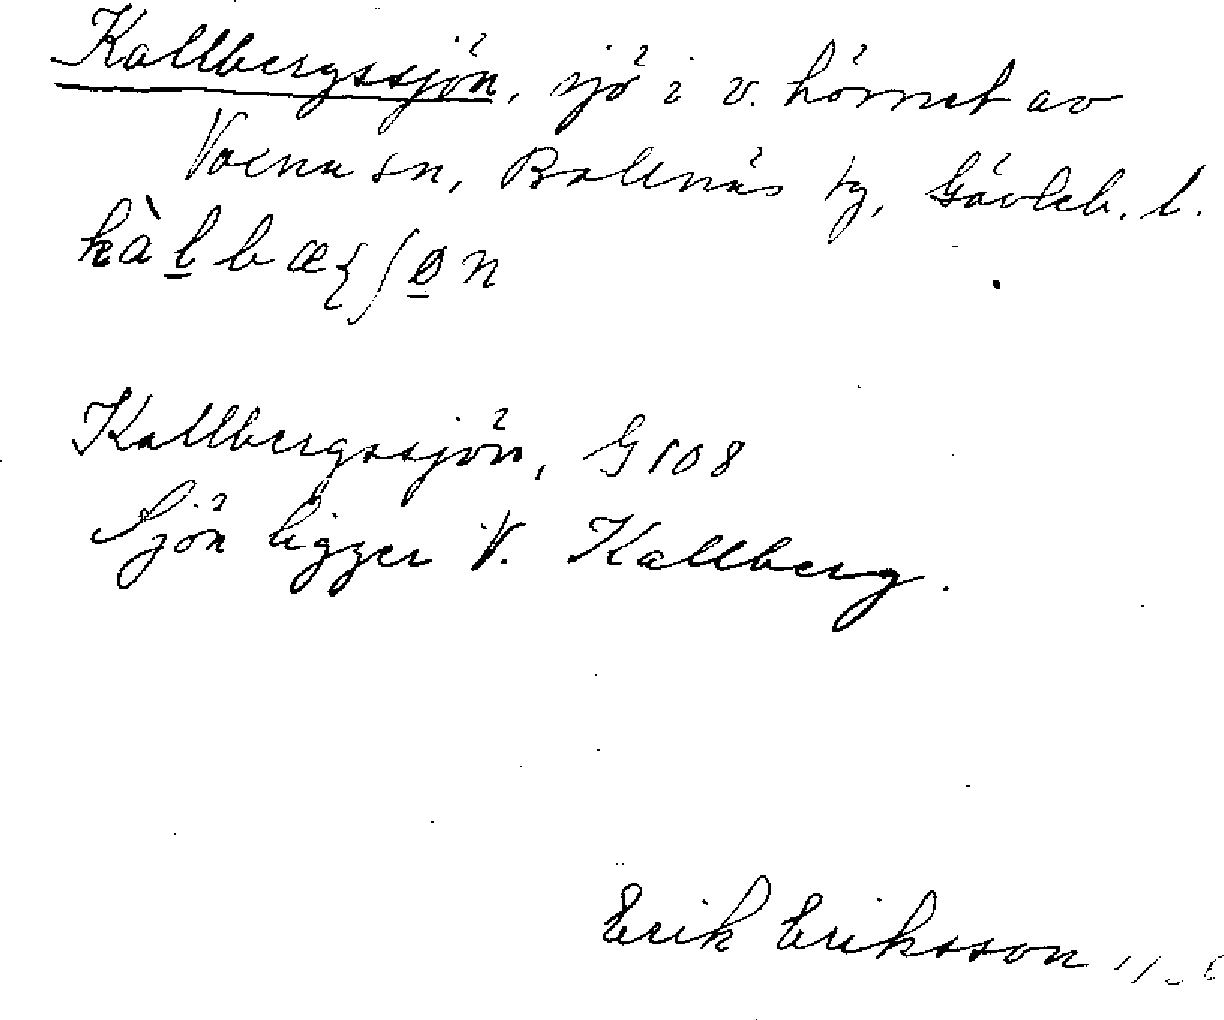 Kallbergssjön, sjö i v. hörnet av
Voxna sn, Bollnäs tg, Gävleb. l.
kàl̲bæɼʃø̲n
Kallbergssjön, G 108
Sjön ligger V. Kallberg.
Erik Eriksson